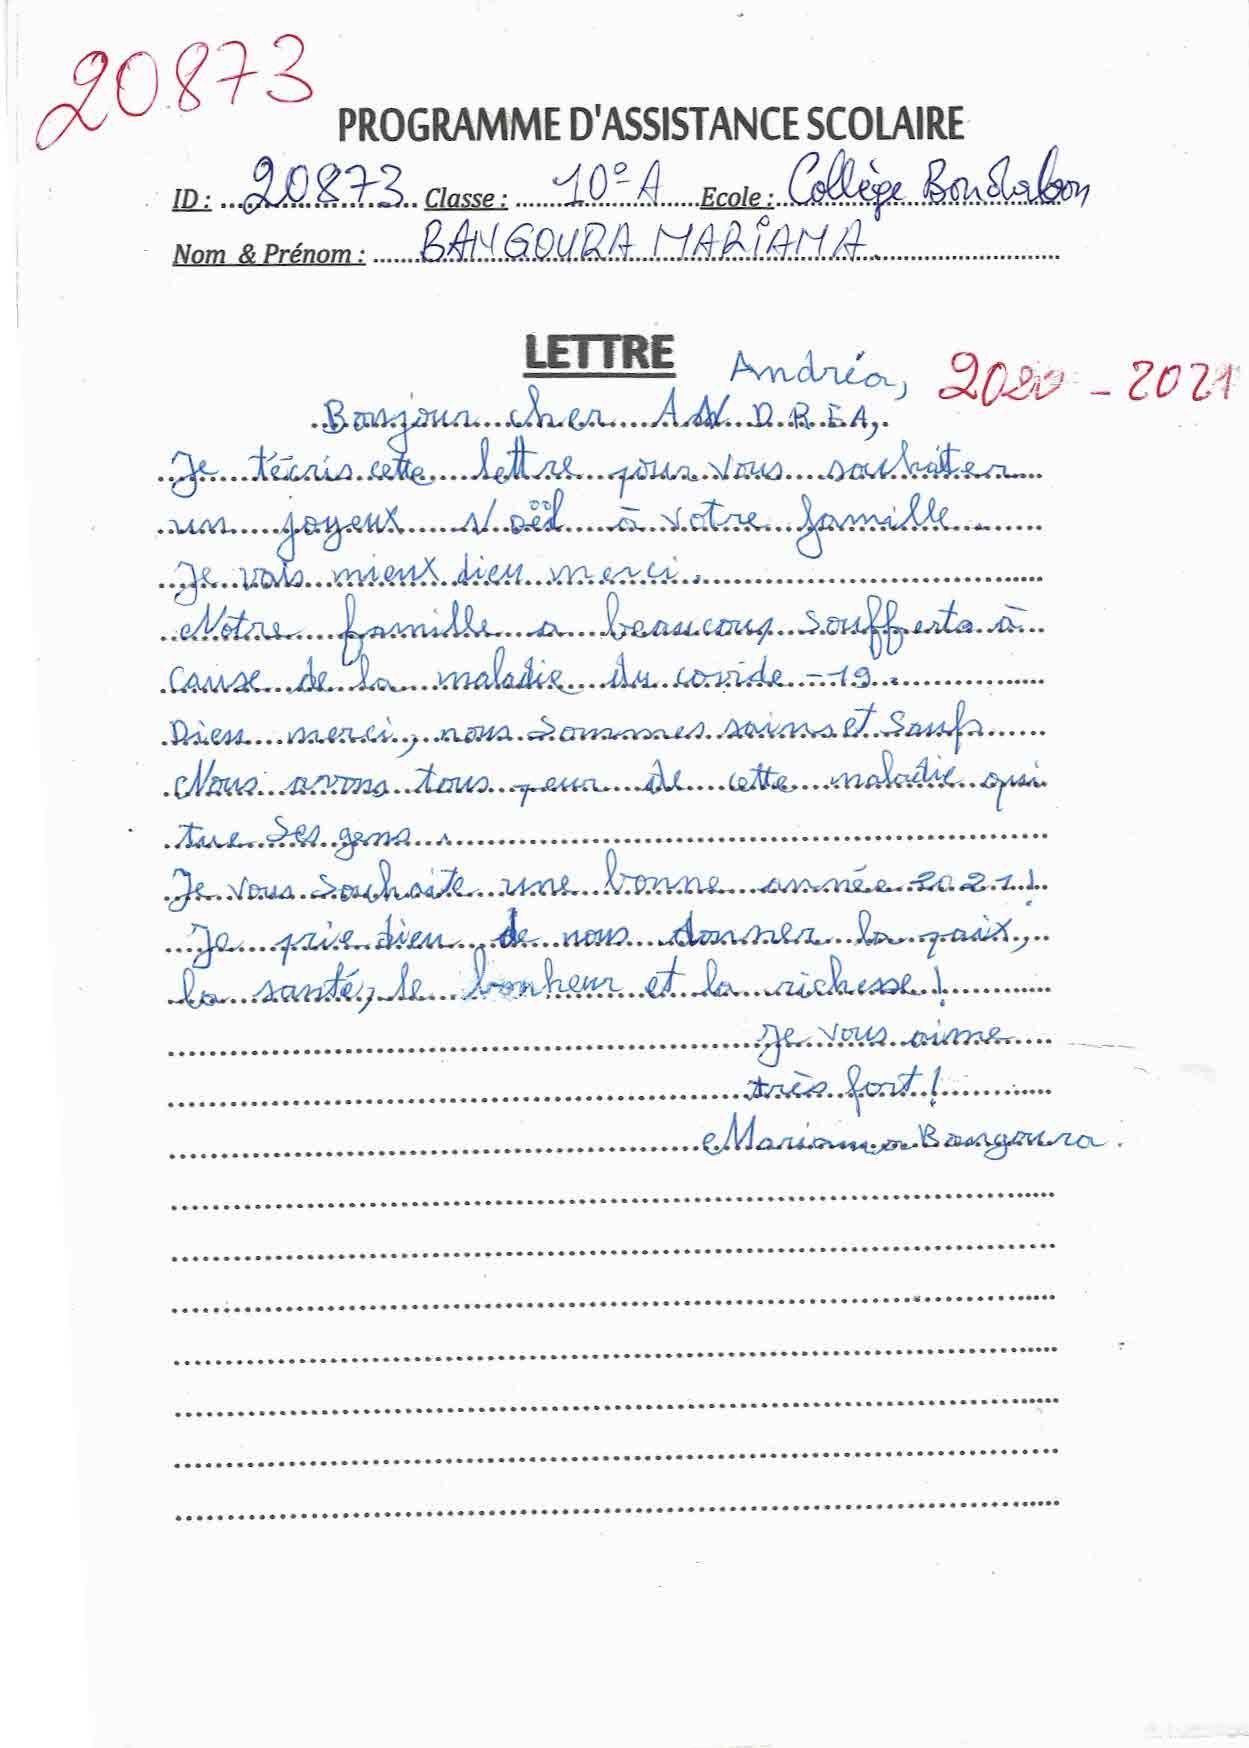 20873
PROGRAMME D'ASSISTANCE SCOLAIRE
ID : 20873 Classe : 10°A Ecole : Collège
Nom & Prénom : BANGOURA MARIAMA
LETTRE Andréa, 2020 - 2021
Bonjour cher ANDREA,
Je técris cette lettre pour vous souhaiter
un joyeux Noël à votre famille
Je vais mieux dieu merci.
Notre famille a beaucoup soufferts à
cause de la maladie du covide-19.
Dieu merci, nous sommes sains et saufs
Nous avons tous peur de cette maladie qui
tue ses gens.
Je vous souhaite une bonne année 2021!
Je prie dieu de nous donner la paix,
la santé, le bonheur et la richesse!
Je vous aime
très fort!
Mariama Bangoura.